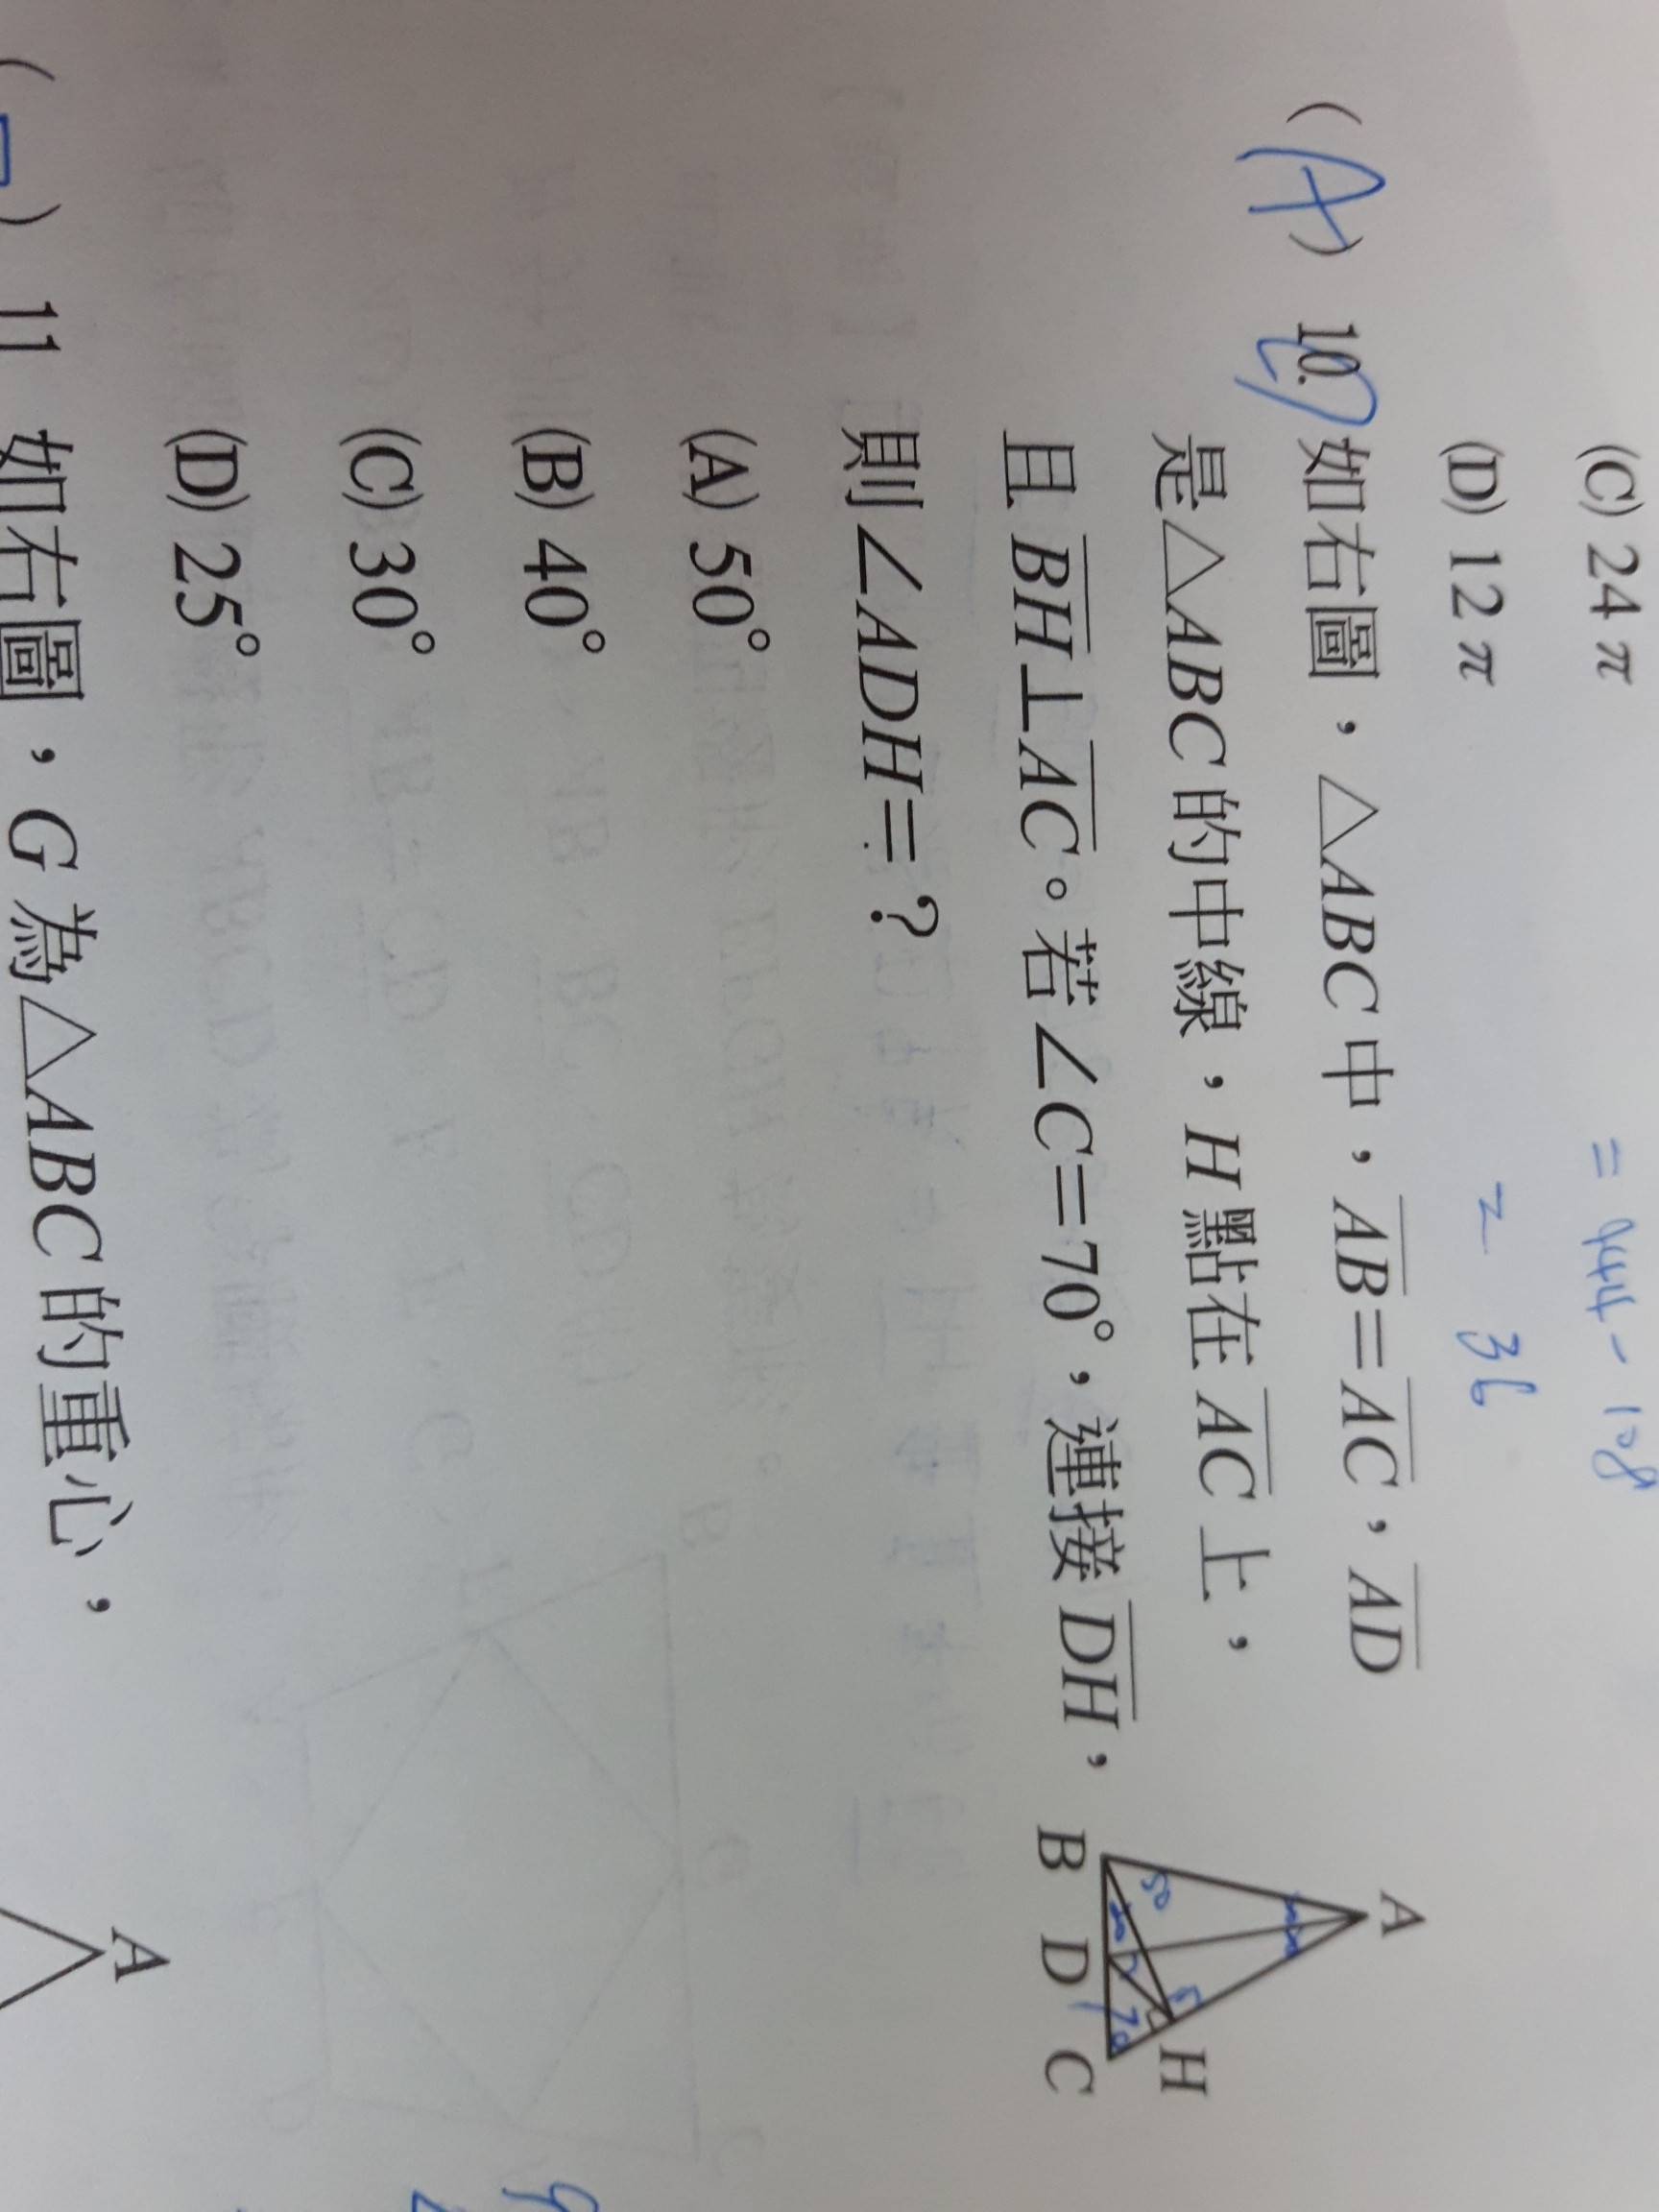 (C) 24π
= 144 - 108
(D) 12π
= 36
(A) 10. 如右圖，△ABC中，AB=AC，AD
是△ABC的中線，H點在AC上，
且BH⊥AC。若∠C=70°，連接DH，
則∠ADH=？
(A) 50°
(B) 40°
(C) 30°
(D) 25°
A
50
H
70
B D C
( ) 11 如右圖，G為△ABC的重心，
A